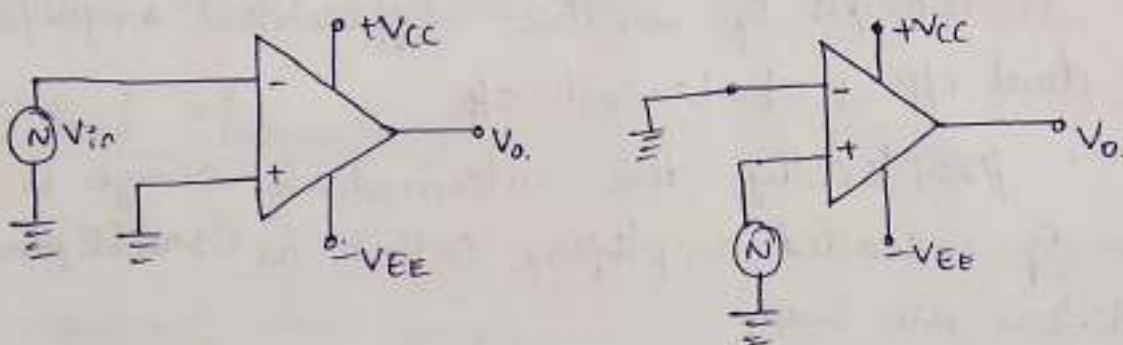 +VCC
-
Vin
+
Vo.
-VEE
+VCC
-
+
Vo.
-VEE